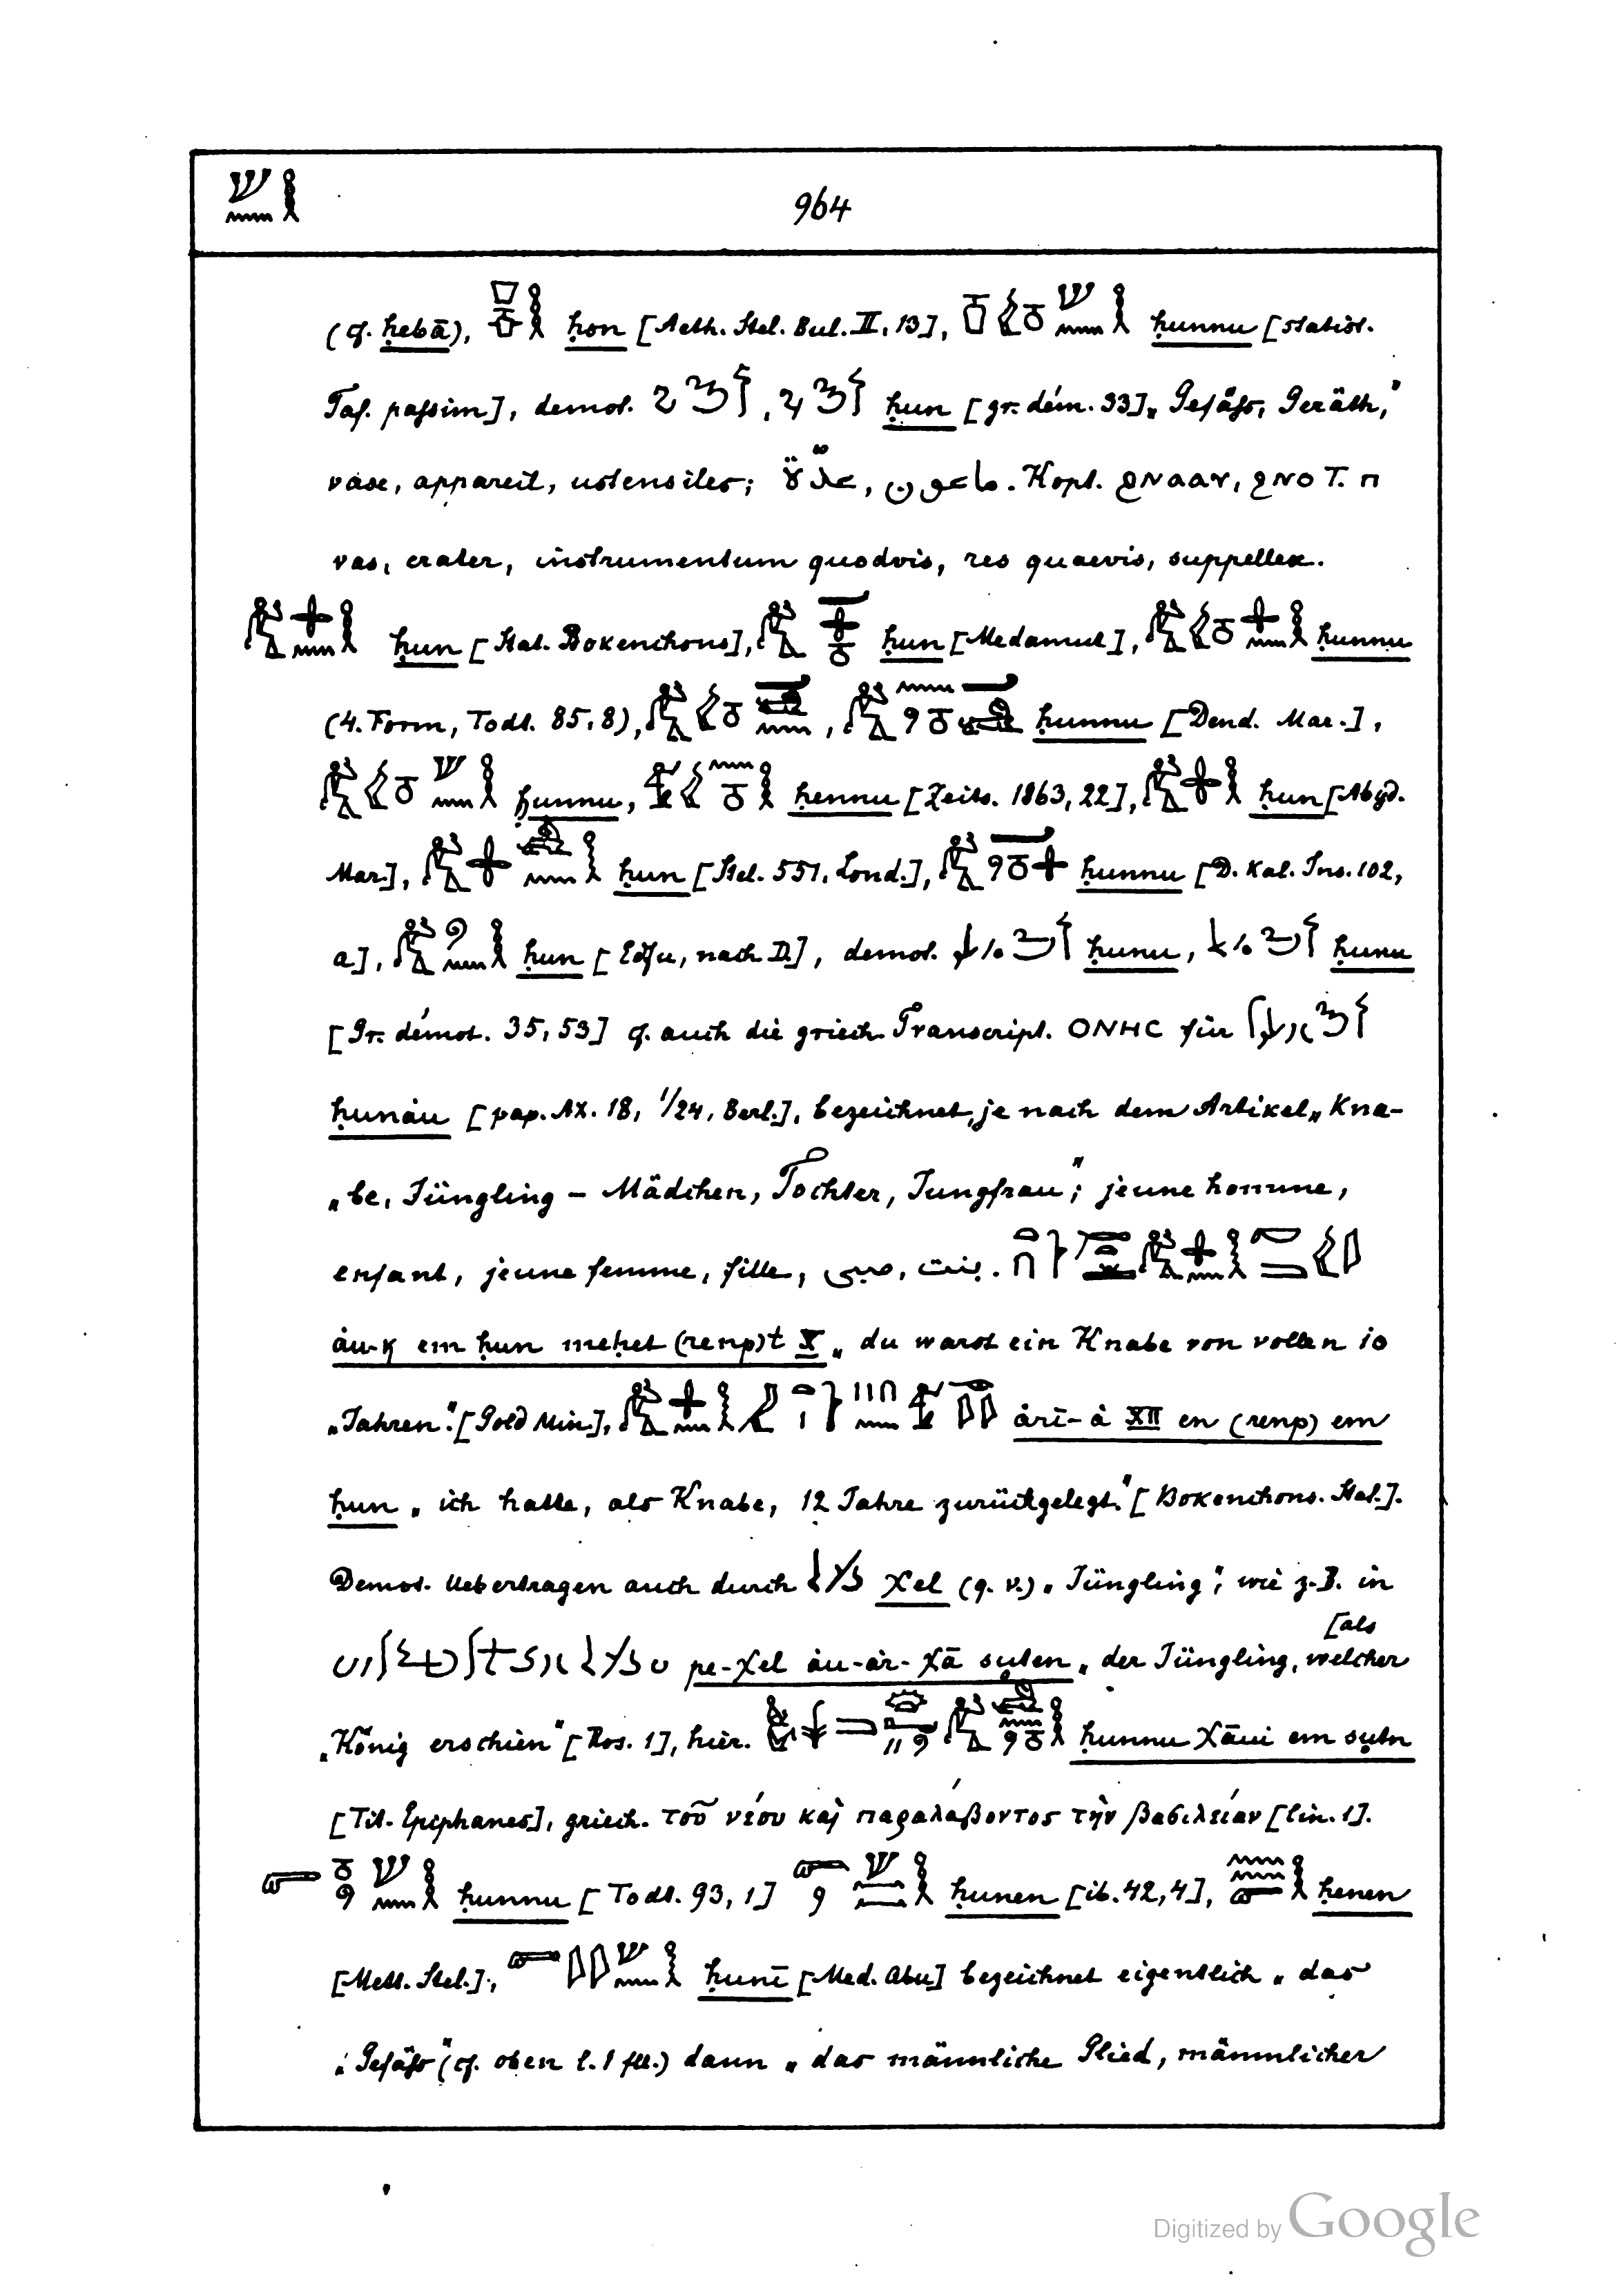 964
(cf. ḥebā), ḥon [Aeth. Stel. Bul. II, 13], ḥunnu [statist.
Taf. passim], demot. ḥun [gr. dém. 33] „Gefäss, Geräth,"
vase, appareil, ustensiles; عدّة, ماعون. Kopt. ϩⲛⲁⲁⲩ, ϩⲛⲟ Τ. ⲡ
vas, crater, instrumentum quodvis, res quaevis, suppellex.
ḥun [Stat. Bokenchons], ḥun [Medamut], ḥunnu
(4. Form, Todt. 85, 8), ḥunnu [Dend. Mar.],
ḥunnu, ḥennu [Zeits. 1863, 22], ḥun [Abyd.
Mar.], ḥun [Stel. 551, Lond.], ḥunnu [D. Kal. Ins. 102,
a], ḥun [Edfu, nach D.], demot. ḥunu, ḥunu
[Gr. démot. 35, 53] cf. auch die griech. Transcript. ΟΝΗC für
ḥunȧu [pap. Ax. 18, 1/24, Berl.], bezeichnet, je nach dem Artikel „Kna-
„be, Jüngling – Mädchen, Tochter, Jungfrau"; jeune homme,
enfant, jeune femme, fille, صبى, بنت.
ȧu-k em ḥun meḥet (renp)t X „du warst ein Knabe von vollen 10
„Jahren". [Gold Min.], ȧrī-ȧ XII en (renp) em
ḥun „ich hatte, als Knabe, 12 Jahre zurückgelegt." [Bokenchons. Stat.].
Demot. Uebertragen auch durch χel (q. v.) „Jüngling", wie z. B. in
[als
pe-χel ȧu-ȧr-χā suten „der Jüngling, welcher
„König erschien" [Ros. 1], hier. ḥunnu χāui em sutn
[Tit. Epiphanes], griech. τοῦ νέου καὶ παραλάβοντος τὴν βασιλείαν [lin. 1].
ḥunnu [Todt. 93, 1] ḥunen [ib. 42, 4], ḥenen
[Mett. Stel.], ḥunī [Med. Abu] bezeichnet eigentlich „das
„Gefäss" (cf. oben l. 1 fll.) dann „das männliche Glied, männlicher
Digitized by Google